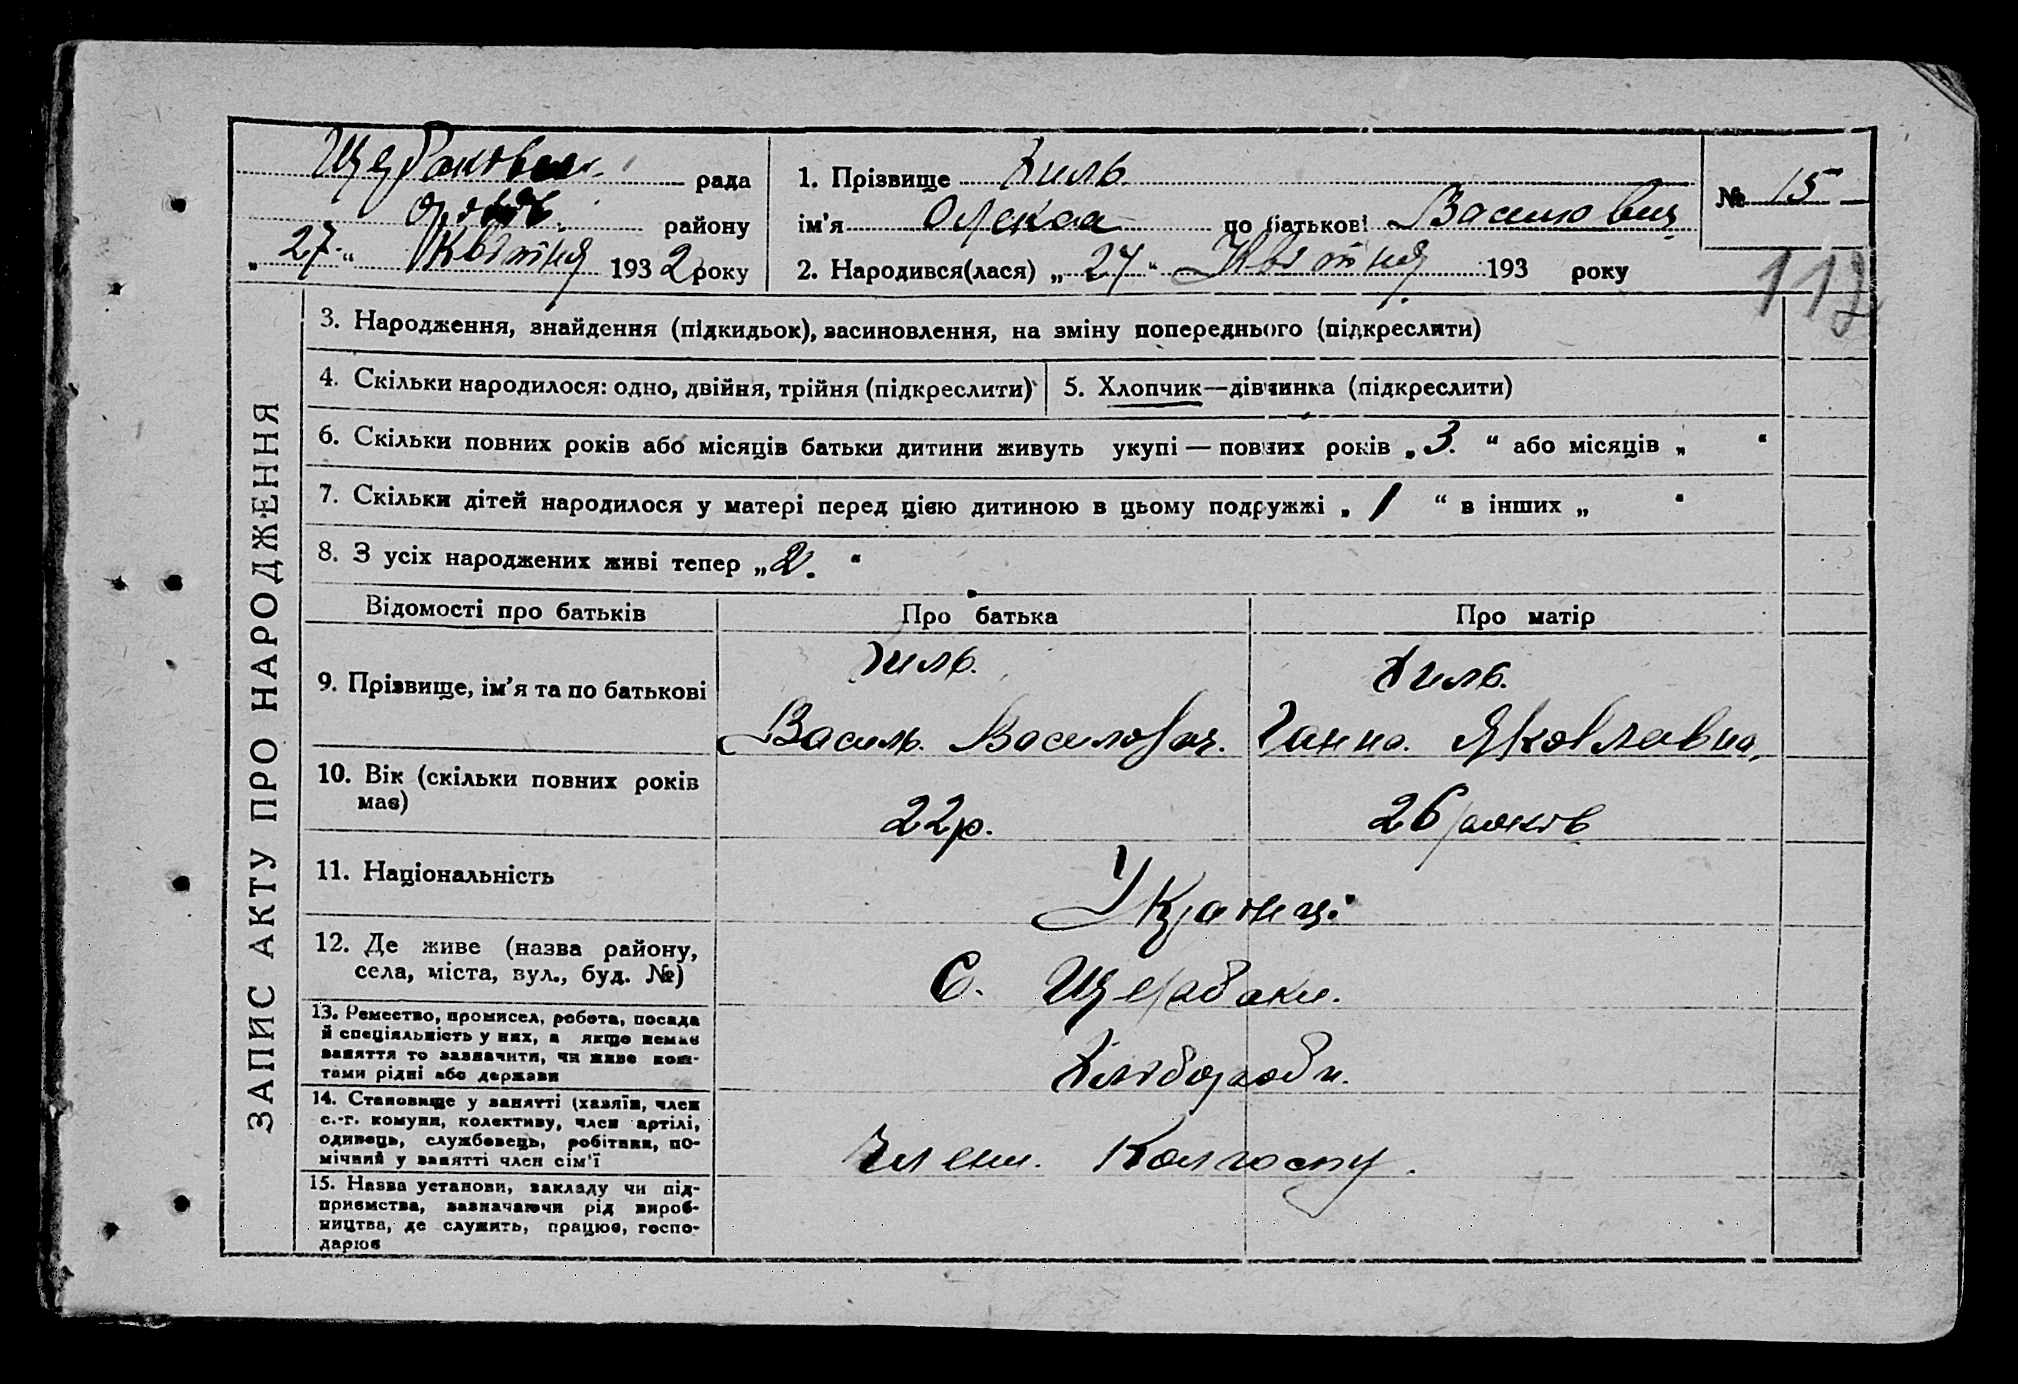 рада
району
„ 27 “ Квітня 1932 року
1. Прізвище Хиль
ім'я Олекса по батькові Василович
2. Народився(лася) „ 27 “ Квітня 193 року
№ 15
117
ЗАПИС АКТУ ПРО НАРОДЖЕННЯ
3. Народження, знайдення (підкидьок), засиновлення, на зміну попереднього (підкреслити)
4. Скільки народилося: одно, двійня, трійня (підкреслити)
5. Хлопчик—дівчинка (підкреслити)
6. Скільки повних років або місяців батьки дитини живуть укупі — повних років „ 3. “ або місяців „ “
7. Скільки дітей народилося у матері перед цією дитиною в цьому подружжі „ 1 “ в інших „ “
8. З усіх народжених живі тепер „ 2. “
Відомості про батьків
Про батька
Про матір
9. Прізвище, ім'я та по батькові
Хиль.
Василь. Василович.
Хиль.
Ганна. Яковлавна,
10. Вік (скільки повних років
має)
22 р.
26 років
11. Національність
Українці
12. Де живе (назва району,
села, міста, вул., буд. №)
С. Щербаки.
13. Ремество, промисел, робота, посада
й спеціяльність у них, а якщо немає
заняття то зазначити, чи живе кош-
тами рідні або держави
Хлібороби.
14. Становище у занятті (хазяїн, член
с.-г. комуни, колективу, член артілі,
одинець, службовець, робітник, по-
мічний у занятті член сім'ї
Члени. Колгоспу.
15. Назва установи, закладу чи під-
приємства, зазначаючи рід вироб-
ництва, де служить, працює, госпо-
дарює